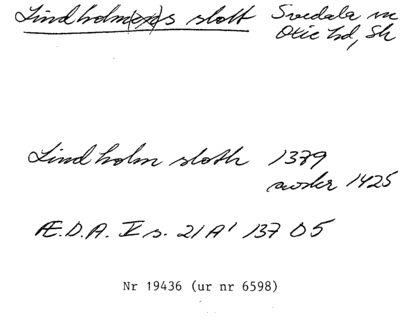 Lindholmens slott Svedala sn
Oxie hd, Sk
Lindholm sloth 1379
avskr 1425
Æ.D.A. V s. 21 A' 137 05
Nr 19436 (ur nr 6598)